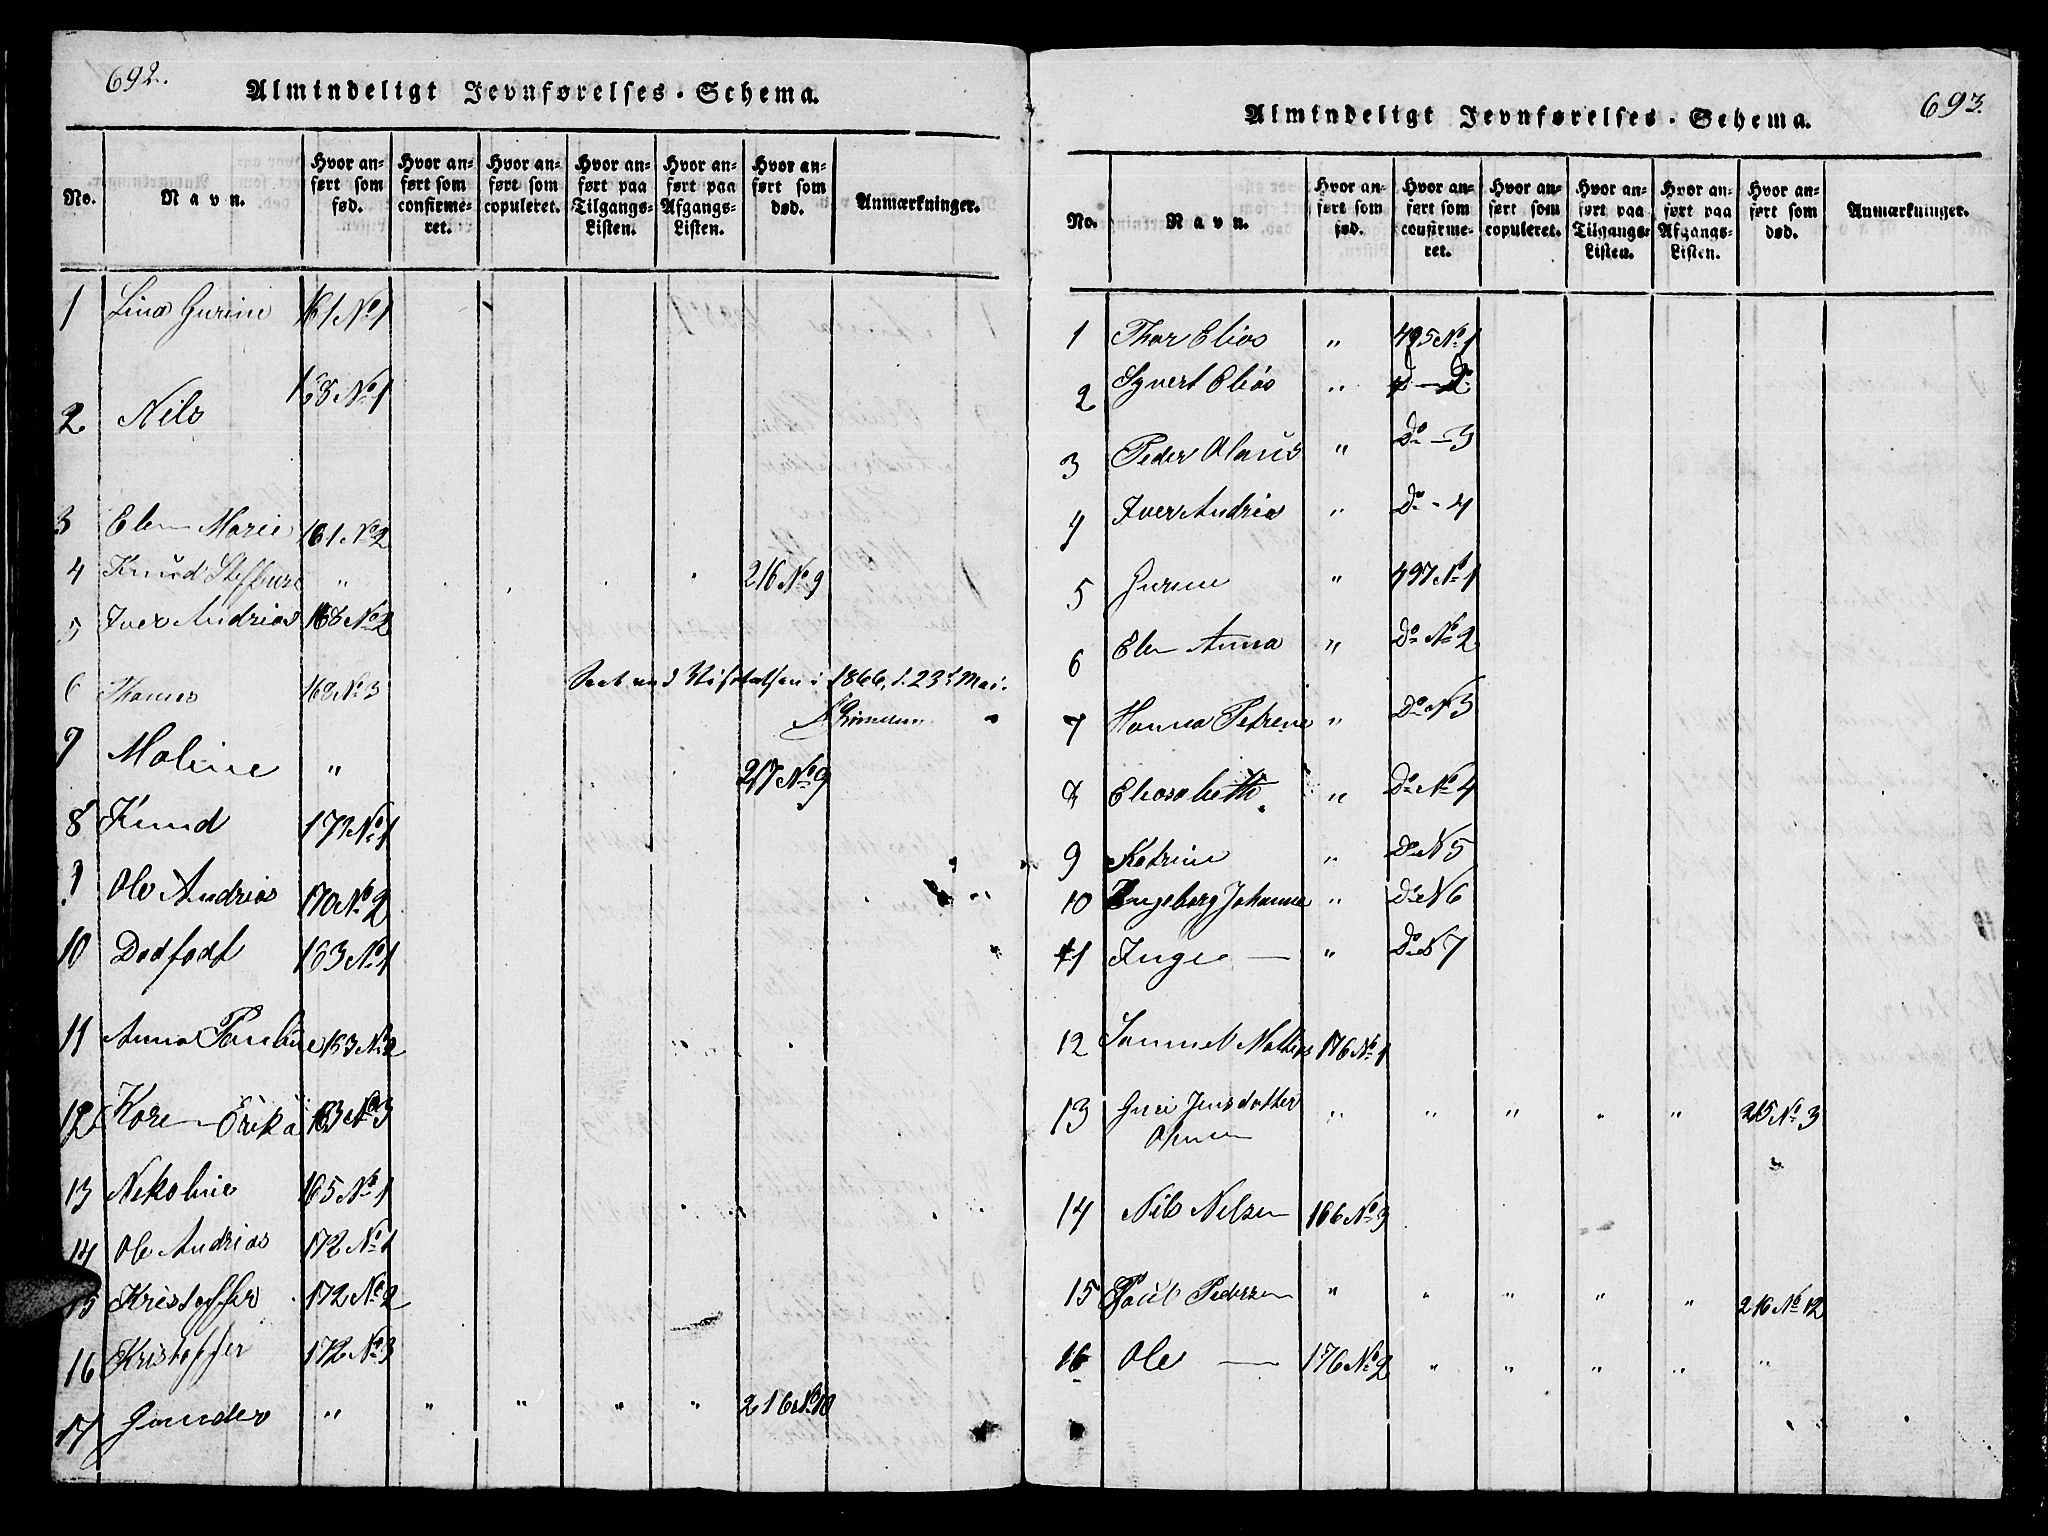 692.
Almindeligt Jevnførelses-Schema.
No. Navn. Hvor anført som fød. Hvor anført som confirmeret. Hvor anført som copuleret. Hvor anført paa Tilgangs-Listen. Hvor anført paa Afgangs-Listen. Hvor anført som død. Anmærkninger.
1 Lina Gurine 161 No 1
2 Nils 168 No 1
3 Elen Marie 161 No 2
4 Knud " 216 No 9
5 Iver Andreas 168 No 2
6 Thomas 168 No 3 Seet ved Visitatsen i 1866, d. 23d Mai.
7 Maline " 217 No 9
8 Knud 171 No 1
9 Ole Andrias 170 No 2
10 Dødfødt 163 No 1
11 Anna Pauline 163 No 2
12 Karen Erika 163 No 3
13 Nekoline 165 No 1
14 Ole Andrias 172 No 1
15 Kristoffer 172 No 2
16 Kristoffer 172 No 3
17 Gunder " " " " " 216 No 10
693.
Almindeligt Jevnførelses-Schema.
No. Navn. Hvor anført som fød. Hvor anført som confirmeret. Hvor anført som copuleret. Hvor anført paa Tilgangs-Listen. Hvor anført paa Afgangs-Listen. Hvor anført som død. Anmærkninger.
1 Thor Elias " 495 No 1
2 Syvert Elias " Do - 2
3 Peder Olaus " Do - 3
4 Iver Andrias " Do - 4
5 Gurine " 497 No 1
6 Elen Anna " Do No 2
7 Hanna Petrine " Do N 3
8 Elisabeth " Do No 4
9 Katrine " Do N 5
10 Ingeborg Johanne " Do N 6
11 Inger — " Do N 7
12 Samuel Mathias 176 No 1
13 Guri Jensdatter " " " " " 215 No 3
14 Nils Nelsen 166 No 3
15 Poul Pedersen " " " " " 216 No 12
16 Ole — 176 No 2 " " " " "